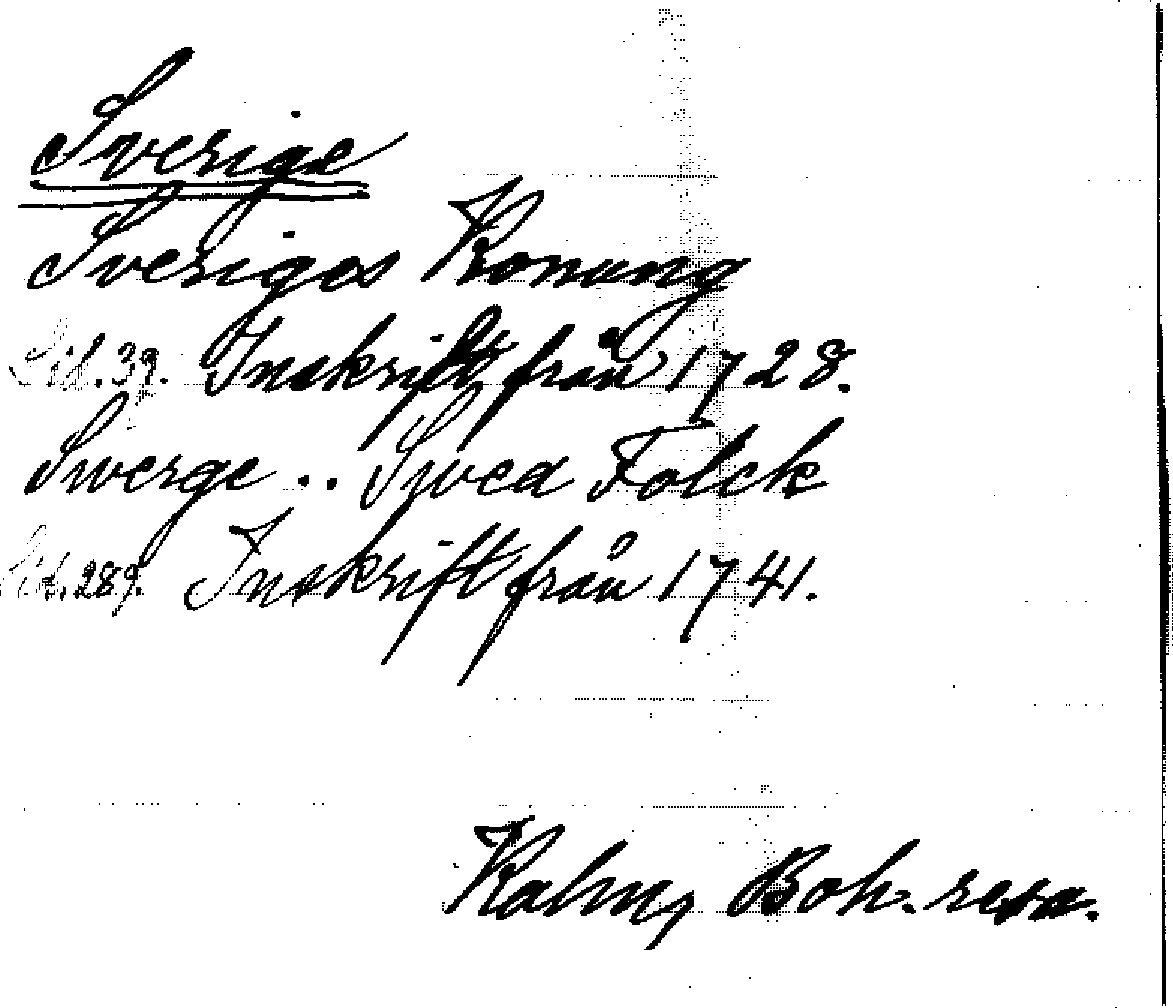 Sverige
Sveriges Konung
Sid. 39. Inskrift från 1728.
Swerge .. Swea Folck
Sid. 289. Inskrift från 1741.
Kalm, Boh. resa.